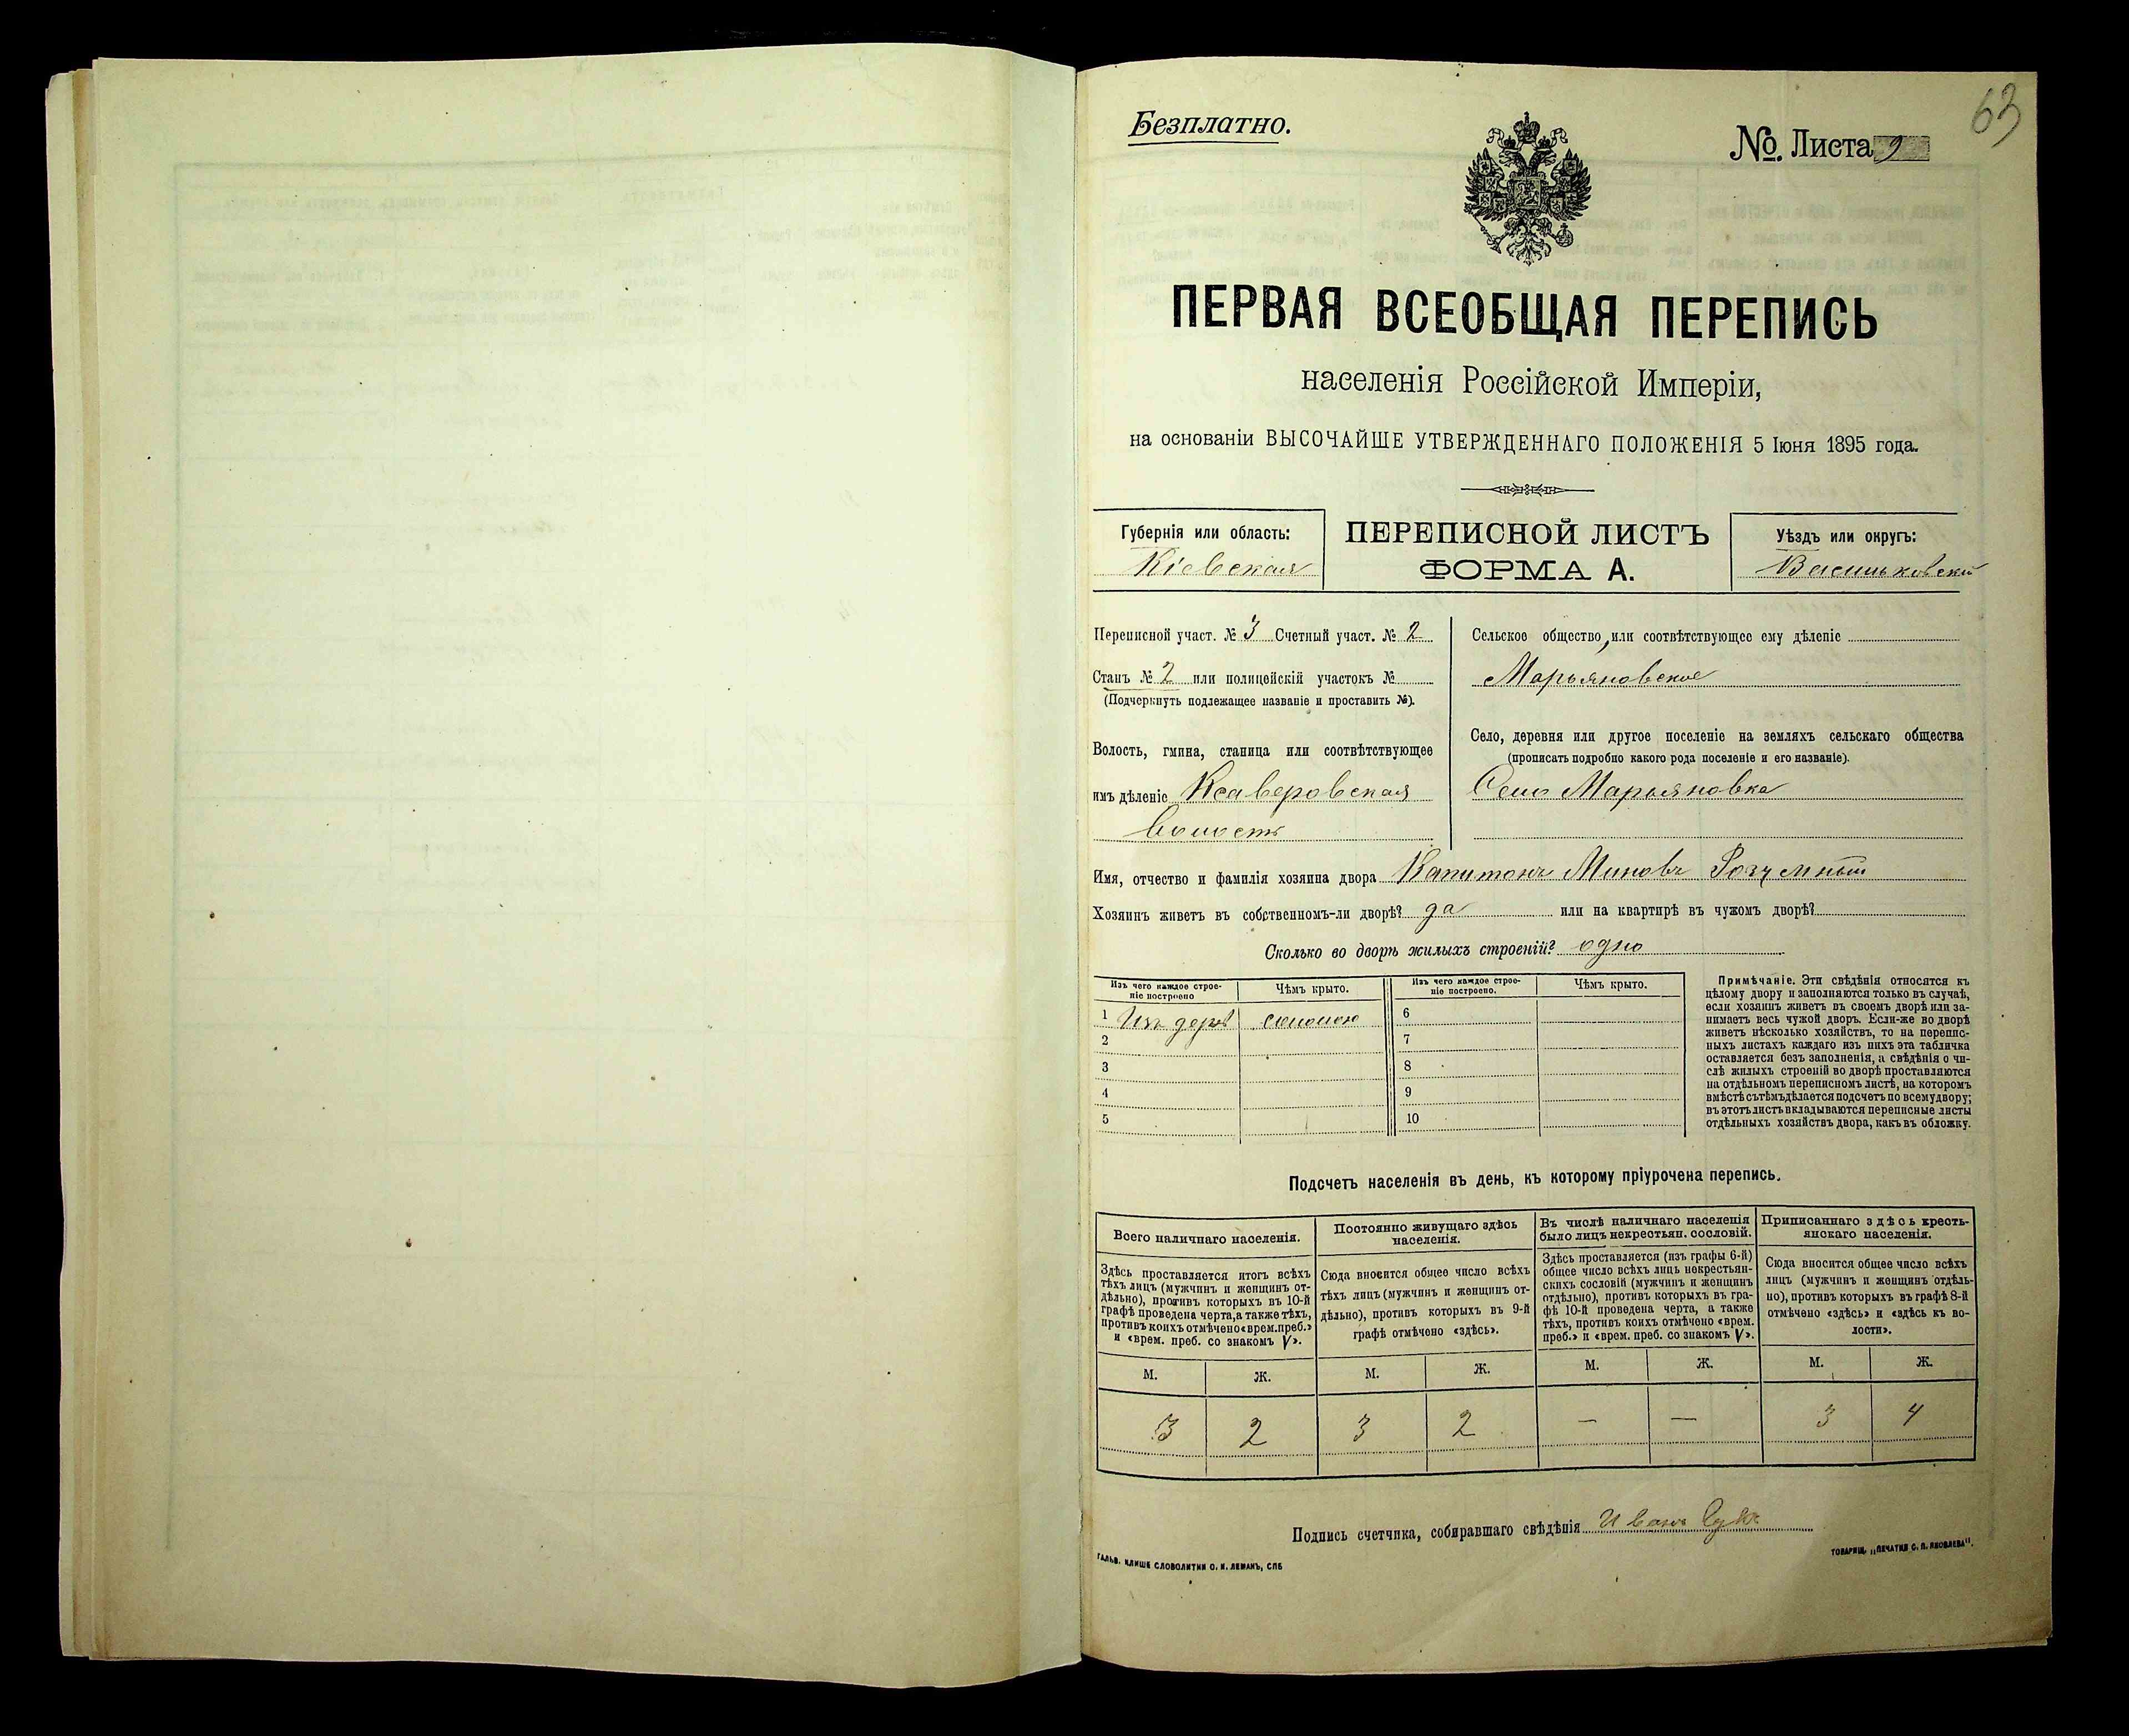 63
Безплатно.
№ Листа 9
ПЕРВАЯ ВСЕОБЩАЯ ПЕРЕПИСЬ
населенія Россійской Имперіи,
на основаніи ВЫСОЧАЙШЕ УТВЕРЖДЕННАГО ПОЛОЖЕНІЯ 5 Іюня 1895 года.
Губернія или область:
Кіевская
ПЕРЕПИСНОЙ ЛИСТЪ
ФОРМА А.
Уѣздъ или округъ:
Васильковскій
Переписной участ. № 3 Счетный участ. № 2
Станъ № 2 или полицейскій участокъ №
(Подчеркнуть подлежащее названіе и проставить №).
Волость, гмина, станица или соотвѣтствующее
имъ дѣленіе Ксаверовская
волость
Сельское общество, или соотвѣтствующее ему дѣленіе
Марьяновское
Село, деревня или другое поселеніе на земляхъ сельскаго общества
(прописать подробно какого рода поселеніе и его названіе).
Село Марьяновка
Имя, отчество и фамилія хозяина двора Капитонъ Миновъ Розумный
Хозяинъ живетъ въ собственномъ-ли дворѣ? да или на квартирѣ въ чужомъ дворѣ?
Сколько во дворѣ жилыхъ строеній? одно
Изъ чего каждое строе-
ніе построено
Чѣмъ крыто.
1 Изъ дерев соломою
2
3
4
5
Изъ чего каждое строе-
ніе построено.
Чѣмъ крыто.
6
7
8
9
10
Примѣчаніе. Эти свѣдѣнія относятся къ
цѣлому двору и заполняются только въ случаѣ,
если хозяинъ живетъ въ своемъ дворѣ или за-
нимаетъ весь чужой дворъ. Если-же во дворѣ
живетъ нѣсколько хозяйствъ, то на перепис-
ныхъ листахъ каждаго изъ нихъ эта табличка
оставляется безъ заполненія, а свѣдѣнія о чи-
слѣ жилыхъ строеній во дворѣ проставляются
на отдѣльномъ переписномъ листѣ, на которомъ
вмѣстѣ сътѣмъ дѣлается подсчетъ по всему двору;
въ этотъ листъ вкладываются переписные листы
отдѣльныхъ хозяйствъ двора, какъ въ обложку.
Подсчетъ населенія въ день, къ которому пріурочена перепись.
Всего наличнаго населенія.
Здѣсь проставляется итогъ всѣхъ
тѣхъ лицъ (мужчинъ и женщинъ от-
дѣльно), противъ которыхъ въ 10-й
графѣ проведена черта, а также тѣхъ,
противъ коихъ отмѣчено «врем. преб.»
и «врем. преб. со знакомъ V».
М. Ж.
3 2
Постоянно живущаго здѣсь
населенія.
Сюда вносится общее число всѣхъ
тѣхъ лицъ (мужчинъ и женщинъ от-
дѣльно), противъ которыхъ въ 9-й
графѣ отмѣчено «здѣсь».
М. Ж.
3 2
Въ числѣ наличнаго населенія
было лицъ некрестьян. сословій.
Здѣсь проставляется (изъ графы 6-й)
общее число всѣхъ лицъ некрестьян-
скихъ сословій (мужчинъ и женщинъ
отдѣльно), противъ которыхъ въ гра-
фѣ 10-й проведена черта, а также
тѣхъ, противъ коихъ отмѣчено «врем.
преб.» и «врем. преб. со знакомъ V».
М. Ж.
— —
Приписаннаго здѣсь кресть-
янскаго населенія.
Сюда вносится общее число всѣхъ
лицъ (мужчинъ и женщинъ отдѣль-
но), противъ которыхъ въ графѣ 8-й
отмѣчено «здѣсь» и «здѣсь къ во-
лости».
М. Ж.
3 4
Подпись счетчика, собиравшаго свѣдѣнія Иванъ
ГАЛЬВ. КЛИШЕ СЛОВОЛИТНИ О. И. ЛЕМАНЪ, СПБ
ТОВАРИЩ. „ПЕЧАТНЯ С. П. ЯКОВЛЕВА".